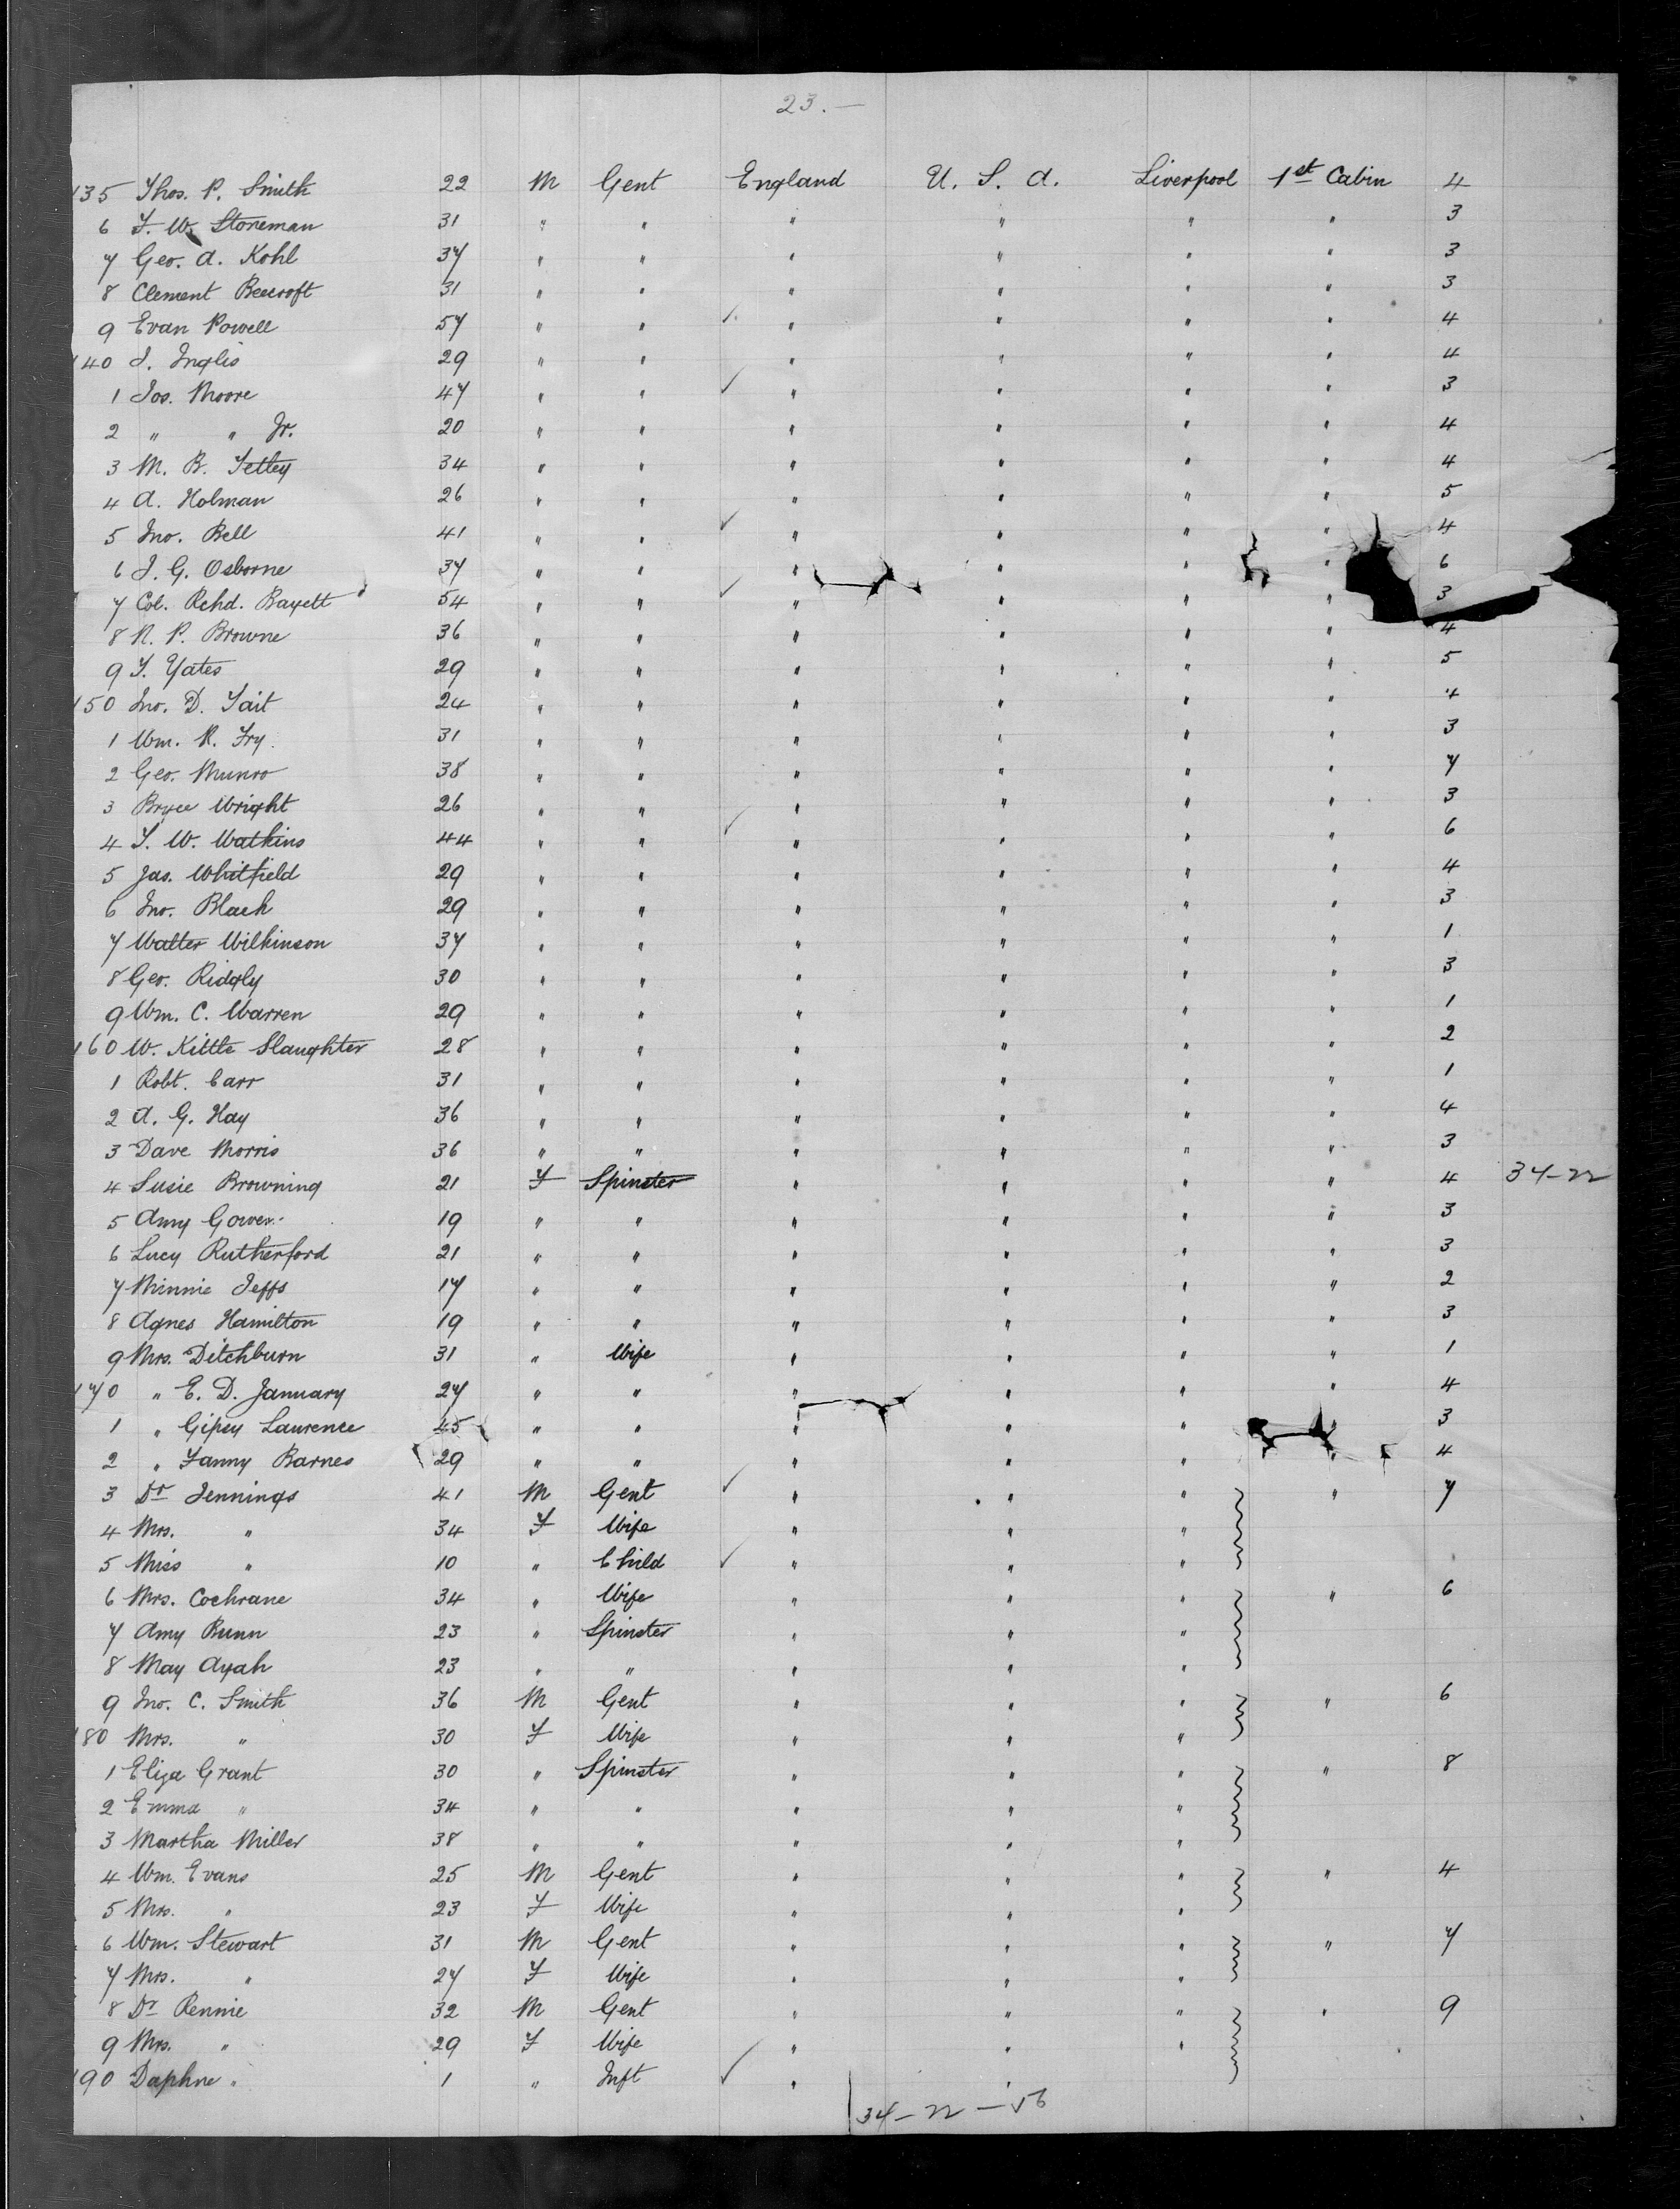 23.—
135 Thos. P. Smith 22 M Gent England U. S. A. Liverpool 1st Cabin 4
6 F. W. Stoneman 31 " " " " " " 3
7 Geo. A. Kohl 37 " " " " " " 3
8 Clement Beecroft 31 " " " " " " 3
9 Evan Powell 57 " " ✓ " " " " 4
140 J. Inglis 29 " " " " " " 4
1 Jos. Moore 47 " " ✓ " " " " 3
2 " " Jr. 20 " " " " " " 4
3 M. B. Tetley 34 " " " " " " 4
4 A. Holman 26 " " " " " " 5
5 Jno. Bell 41 " " ✓ " " " " 4
6 J. G. Osborne 37 " " " " " " 6
7 Col. Rchd. Bayett 54 " " ✓ " " " " 3
8 R. P. Browne 36 " " " " " " 4
9 T. Yates 29 " " " " " " 5
150 Jno. D. Tait 24 " " " " " " 4
1 Wm. R. Fry 31 " " " " " " 3
2 Geo. Munro 38 " " " " " " 7
3 Bryce Wright 26 " " " " " " 3
4 T. W. Watkins 44 " " ✓ " " " " 6
5 Jas. Whitfield 29 " " " " " " 4
6 Jno. Black 29 " " " " " " 3
7 Walter Wilkinson 37 " " " " " " 1
8 Geo. Ridgly 30 " " " " " " 3
9 Wm. C. Warren 29 " " " " " " 1
160 W. Kittle Slaughter 28 " " " " " " 2
1 Robt. Carr 31 " " " " " " 1
2 A. G. Hay 36 " " " " " " 4
3 Dave Morris 36 " " " " " " 3
4 Susie Browning 21 F Spinster " " " " 4 34-22
5 Amy Gower 19 " " " " " " 3
6 Lucy Rutherford 21 " " " " " " 3
7 Minnie Jeffs 17 " " " " " " 2
8 Agnes Hamilton 19 " " " " " " 3
9 Mrs. Ditchburn 31 " Wife " " " " 1
170 " E. D. January 27 " " " " " " 4
1 " Gipsy Laurence 45 " " " " " " 3
2 " Fanny Barnes 29 " " " " " " 4
3 Dr Jennings 41 M Gent ✓ " " " " 7
4 Mrs. " 34 F Wife " " "
5 Miss " 10 " Child ✓ " " "
6 Mrs. Cochrane 34 " Wife " " " " 6
7 Amy Bunn 23 " Spinster " " "
8 May Ayah 23 " " " " "
9 Jno. C. Smith 36 M Gent " " " " 6
180 Mrs. " 30 F Wife " " "
1 Eliza Grant 30 " Spinster " " " " 8
2 Emma " 34 " " " " "
3 Martha Miller 38 " " " " "
4 Wm. Evans 25 M Gent " " " " 4
5 Mrs. " 23 F Wife " " "
6 Wm. Stewart 31 M Gent " " " " 7
7 Mrs. " 27 F Wife " " "
8 Dr Rennie 32 M Gent " " " " 9
9 Mrs. " 29 F Wife " " "
190 Daphne " 1 " Inft ✓ " "
34-22-56